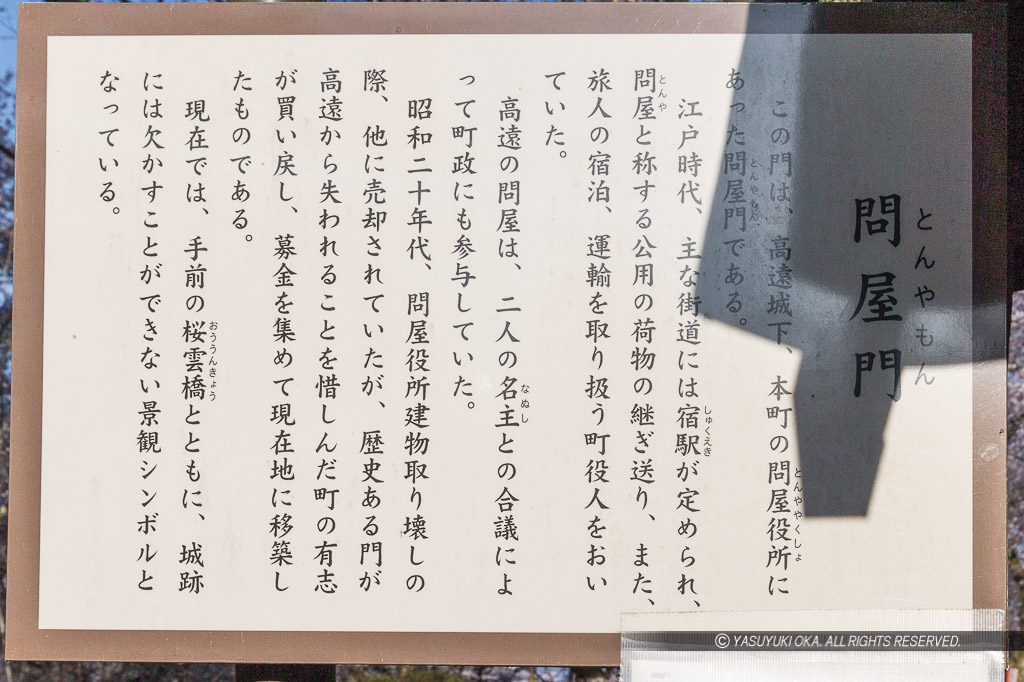 とんやもん
問屋門
この門は、高遠城下、本町の問屋役所に
とんややくしょ
あった問屋門である。
とんやもん
江戸時代、主な街道には宿駅が定められ、
しゅくえき
問屋と称する公用の荷物の継ぎ送り、また、
とんや
旅人の宿泊、運輸を取り扱う町役人をおい
ていた。
高遠の問屋は、二人の名主との合議によ
なぬし
って町政にも参与していた。
昭和二十年代、問屋役所建物取り壊しの
際、他に売却されていたが、歴史ある門が
高遠から失われることを惜しんだ町の有志
が買い戻し、募金を集めて現在地に移築し
たものである。
現在では、手前の桜雲橋とともに、城跡
おううんきょう
には欠かすことができない景観シンボルと
なっている。
Ⓒ YASUYUKI OKA. ALL RIGHTS RESERVED.